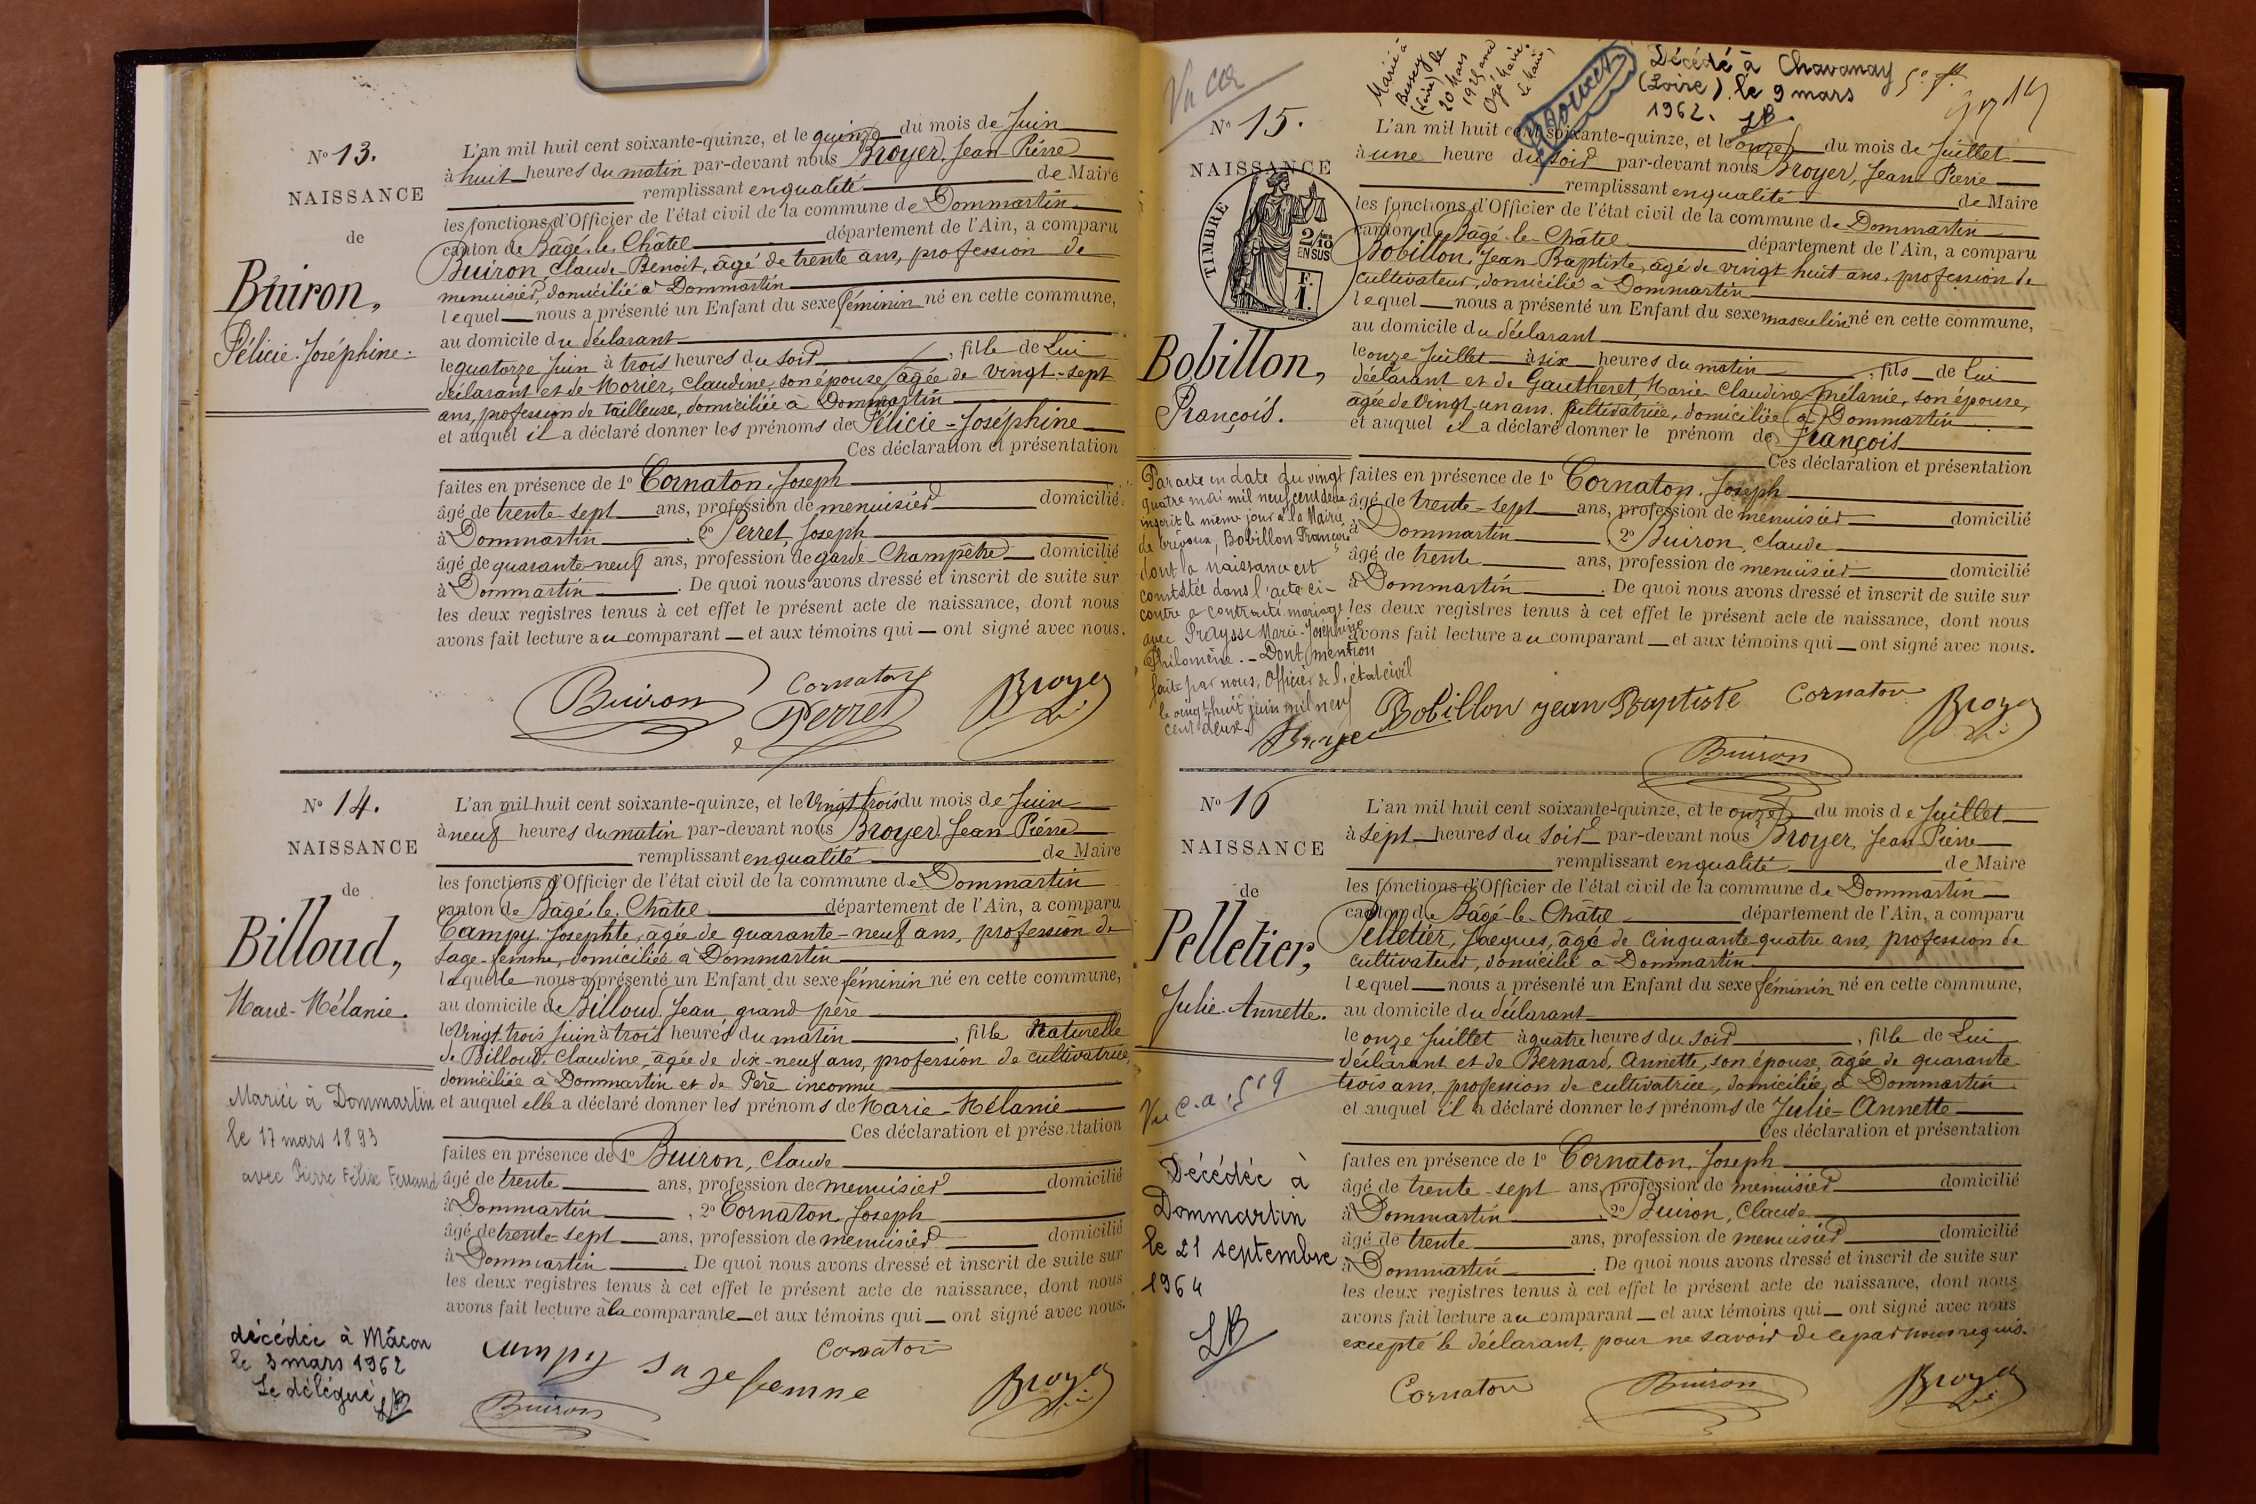 N° 13.
NAISSANCE
de
Buiron,
Félicie-Joséphine.
L'an mil huit cent soixante-quinze, et le quinze du mois de Juin
à huit heures du matin par-devant nous Broyer, Jean-Pierre
remplissant en qualité de Maire
les fonctions d'Officier de l'état civil de la commune de Dommartin
canton de Bâgé-le-Châtel département de l'Ain, a comparu
Buiron, Claude-Benoit, âgé de trente ans, profession de
menuisier, domicilié à Dommartin
lequel nous a présenté un Enfant du sexe féminin né en cette commune,
au domicile du déclarant
le quatorze Juin à trois heures du soir, fille de Lui
déclarant et de Morier, Claudine, son épouse, âgée de vingt-sept
ans, profession de tailleuse, domiciliée à Dommartin
et auquel il a déclaré donner les prénoms de Félicie-Joséphine
Ces déclaration et présentation
faites en présence de 1° Cornaton, Joseph
âgé de trente-sept ans, profession de menuisier domicilié
à Dommartin, 2° Perret, Joseph
âgé de quarante-neuf ans, profession de garde-Champêtre domicilié
à Dommartin. De quoi nous avons dressé et inscrit de suite sur
les deux registres tenus à cet effet le présent acte de naissance, dont nous
avons fait lecture au comparant et aux témoins qui ont signé avec nous.
Buiron Cornaton Perret Broyer
N° 14.
NAISSANCE
de
Billoud,
Marie-Mélanie.
Mariée à Dommartin
le 17 mars 1893
avec Pierre Félix Ferrand
décédée à Mâcon
le 3 mars 1962
Le délégué
L'an mil huit cent soixante-quinze, et le vingt trois du mois de Juin
à neuf heures du matin par-devant nous Broyer, Jean-Pierre
remplissant en qualité de Maire
les fonctions d'Officier de l'état civil de la commune de Dommartin
canton de Bâgé-le-Châtel département de l'Ain, a comparu
Campy, Josephte, âgée de quarante-neuf ans, profession de
sage-femme, domiciliée à Dommartin
laquelle nous a présenté un Enfant du sexe féminin né en cette commune,
au domicile de Billoud, Jean, grand père
le vingt-trois Juin à trois heures du matin, fille Naturelle
de Billoud, Claudine, âgée de dix-neuf ans, profession de cultivatrice,
domiciliée à Dommartin et de Père inconnu
et auquel elle a déclaré donner les prénoms de Marie-Mélanie
Ces déclaration et présentation
faites en présence de 1° Buiron, Claude
âgé de trente ans, profession de menuisier domicilié
à Dommartin, 2° Cornaton, Joseph
âgé de trente-sept ans, profession de menuisier domicilié
à Dommartin. De quoi nous avons dressé et inscrit de suite sur
les deux registres tenus à cet effet le présent acte de naissance, dont nous
avons fait lecture à la comparante et aux témoins qui ont signé avec nous.
Campy sage femme Cornaton
Buiron Broyer
Marié à
Bessey
(Loire) le
20 Mars
Décédé à Chavanay
(Loire) le 9 mars
1962.
N° 15.
NAISSANCE
TIMBRE
2/10
EN SUS
F.
1.
Bobillon,
François.
Par acte en date du vingt
quatre mai mil neuf cent deux
inscrit le même jour à la Mairie
de Crépoux, Bobillon François
dont la naissance est
constatée dans l'acte ci-
contre a contracté mariage
avec Praysse Marie-Joséphine
Philomène. - Dont mention
faite par nous, Officier de l'état civil
le vingt huit juin mil neuf
cent deux.
Broyer
L'an mil huit cent soixante-quinze, et le onze du mois de Juillet
à une heure du soir par-devant nous Broyer, Jean-Pierre
remplissant en qualité de Maire
les fonctions d'Officier de l'état civil de la commune de Dommartin
canton de Bâgé-le-Châtel département de l'Ain, a comparu
Bobillon, Jean-Baptiste, âgé de vingt huit ans, profession de
cultivateur, domicilié à Dommartin
lequel nous a présenté un Enfant du sexe masculin né en cette commune,
au domicile du déclarant
le onze Juillet à six heures du matin, fils de lui
déclarant et de Gautheret, Marie Claudine Mélanie, son épouse,
âgée de vingt-un ans, cultivatrice, domiciliée à Dommartin
et auquel il a déclaré donner le prénom de François
Ces déclaration et présentation
faites en présence de 1° Cornaton, Joseph
âgé de trente-sept ans, profession de menuisier domicilié
à Dommartin 2° Buiron, Claude
âgé de trente ans, profession de menuisier domicilié
à Dommartin. De quoi nous avons dressé et inscrit de suite sur
les deux registres tenus à cet effet le présent acte de naissance, dont nous
avons fait lecture au comparant et aux témoins qui ont signé avec nous.
Bobillon jean Baptiste Cornaton Broyer
Buiron
N° 16
NAISSANCE
de
Pelletier,
Julie-Annette.
Décédée à
Dommartin
le 21 septembre
1964
L'an mil huit cent soixante-quinze, et le onze du mois de Juillet
à sept heures du soir par-devant nous Broyer, Jean-Pierre
remplissant en qualité de Maire
les fonctions d'Officier de l'état civil de la commune de Dommartin
canton de Bâgé-le-Châtel département de l'Ain, a comparu
Pelletier, Jacques, âgé de cinquante-quatre ans, profession de
cultivateur, domicilié à Dommartin
lequel nous a présenté un Enfant du sexe féminin né en cette commune,
au domicile du déclarant
le onze Juillet à quatre heures du soir, fille de Lui
déclarant et de Bernard, Annette, son épouse, âgée de quarante-
trois ans, profession de cultivatrice, domiciliée à Dommartin
et auquel il a déclaré donner les prénoms de Julie-Annette
Ces déclaration et présentation
faites en présence de 1° Cornaton, Joseph
âgé de trente-sept ans, profession de menuisier domicilié
à Dommartin, 2° Buiron, Claude
âgé de trente ans, profession de menuisier domicilié
à Dommartin. De quoi nous avons dressé et inscrit de suite sur
les deux registres tenus à cet effet le présent acte de naissance, dont nous
avons fait lecture au comparant et aux témoins qui ont signé avec nous
excepté le déclarant, pour ne savoir de ce par nous requis.
Cornaton Buiron Broyer